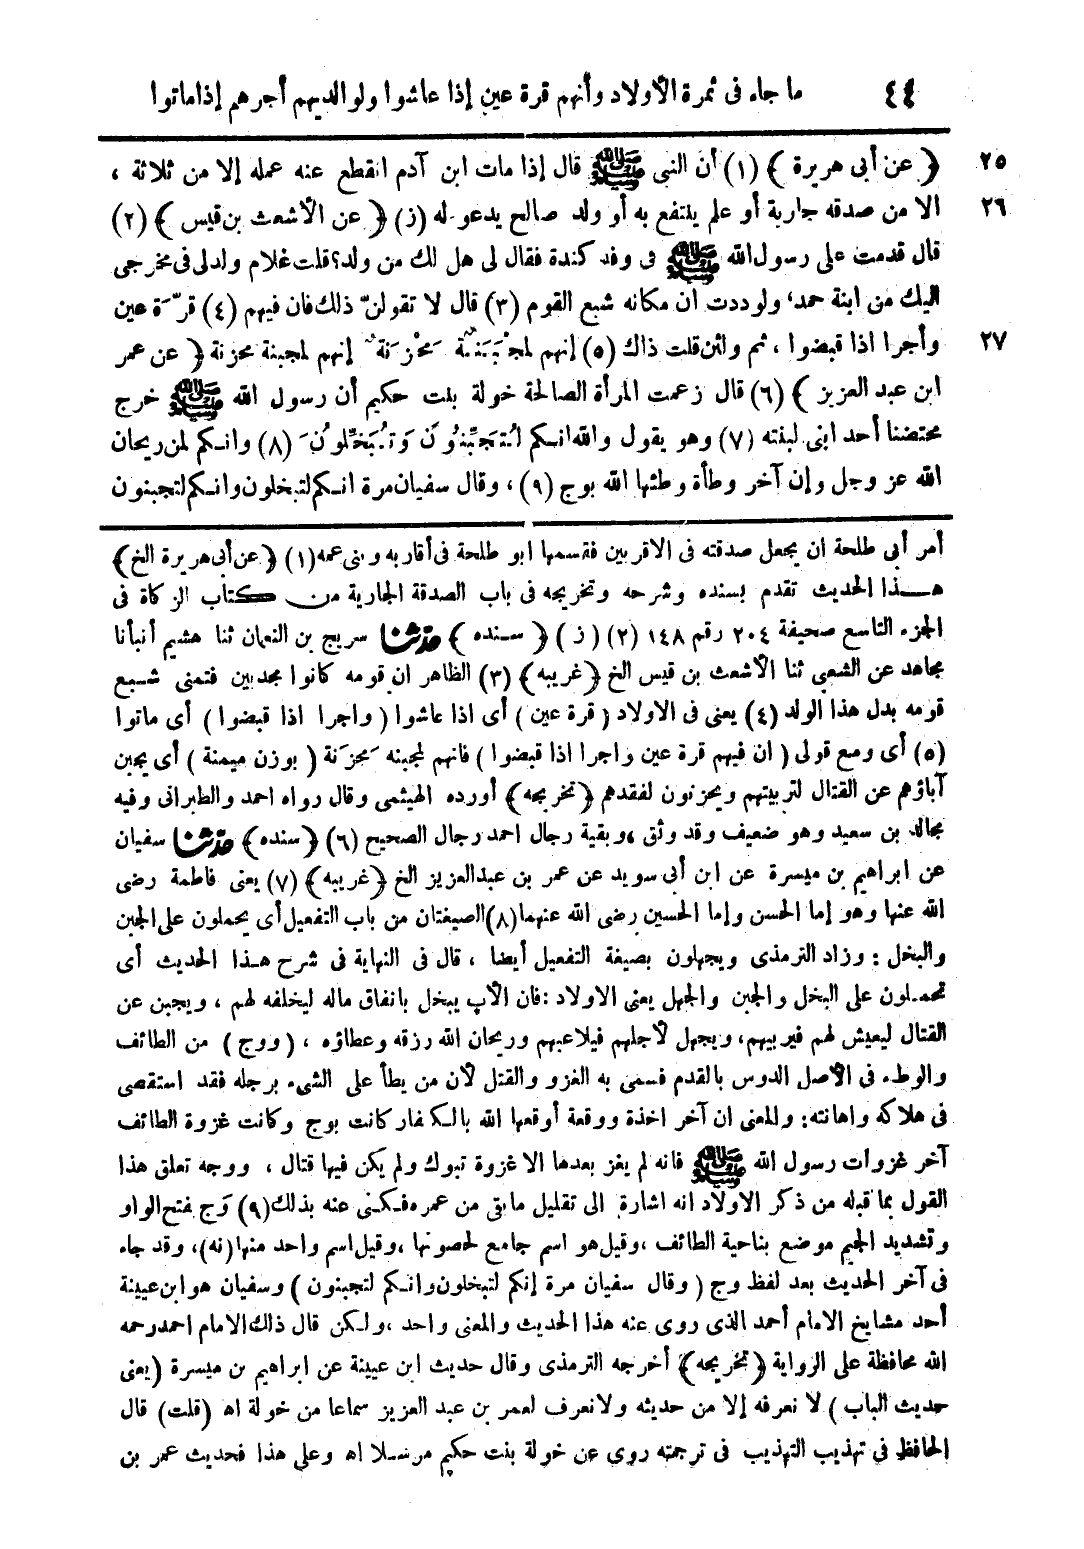 ٤٤ ما جاء فى ثمرة الأولاد وأنهم قرة عين إذا عاشوا ولوالديهم أجرهم إذا ماتوا
٢٥ ﴿ عن أبى هريرة ﴾ (١) أن النبى ﷺ قال إذا مات ابن آدم انقطع عنه عمله إلا من ثلاثة ،
٢٦ الا من صدقه جارية أو علم ينتفع به أو ولد صالح يدعو له (ز) ﴿ عن الأشعث بن قيس ﴾ (٢)
قال قدمت على رسول الله ﷺ فى وفد كندة فقال لى هل لك من ولد؟ قلت غلام ولد لى فى مخرجى
اليك من ابنة حمد، ولوددت ان مكانه شبع القوم (٣) قال لا تقولنّ ذلك فان فيهم (٤) قرّة عين
٢٧ وأجرا اذا قبضوا ، ثم ولئن قلت ذاك (٥) إنهم لمجْبَنَة مَحْزَنة إنهم لمجبنة محزنة ﴿ عن عمر
ابن عبد العزيز ﴾ (٦) قال زعمت المرأة الصالحة خولة بنت حكيم أن رسول الله ﷺ خرج
محتضنا أحد ابنى ابنته (٧) وهو يقول والله انـكم لتُجَبِّنُونَ وَتُبَخِّلُونَ (٨) وانـكم لمن ريحان
الله عز وجل وإن آخر وطأة وطئها الله بوج (٩) ، وقال سفيان مرة انـكم لتبخلون وانـكم لتجبنون
أمر أبى طلحة ان يجعل صدقته فى الاقربين فقسمها ابو طلحة فى أقاربه وبنى عمه (١) ﴿ عن أبى هريرة الخ ﴾
هـذا الحديث تقدم بسنده وشرحه وتخريجه فى باب الصدقة الجارية من كتاب الزكاة فى
الجزء التاسع صحيفة ٢٠٤ رقم ١٤٨ (٢) (ز) ﴿ سـنده ﴾ حدثنا سريج بن النعمان ثنا هشيم أنبأنا
مجاهد عن الشعبى ثنا الأشعث بن قيس الخ ﴿ غريبه ﴾ (٣) الظاهر ان قومه كانوا مجدبين فتمنى شـبع
قومه بدل هذا الولد (٤) يعنى فى الاولاد ( قرة عين ) أى اذا عاشوا ( واجرا اذا قبضوا ) أى ماتوا
(٥) أى ومع قولى ( ان فيهم قرة عين واجرا اذا قبضوا ) فانهم لمجبنه مَحزَنة ( بوزن ميمنة ) أى يجبن
آباؤهم عن القتال لتربيتهم ويحزنون لفقدهم ﴿ تخريجه ﴾ أورده الهيثمى وقال رواه احمد والطبرانى وفيه
مجالد بن سعيد وهو ضعيف وقد وثق ، وبقية رجال احمد رجال الصحيح (٦) ﴿ سنده ﴾ حدثنا سفيان
عن ابراهيم بن ميسرة عن ابن أبى سويد عن عمر بن عبد العزيز الخ ﴿ غريبه ﴾ (٧) يعنى فاطمة رضى
الله عنها وهو إما الحسن وإما الحسين رضى الله عنهما (٨) الصيغتان من باب التفعيل أى يحملون على الجبن
والبخل : وزاد الترمذى ويجهلون بصيغة التفعيل أيضا ، قال فى النهاية فى شرح هـذا الحديث أى
تحمـلون على البخل والجبن والجهل يعنى الاولاد : فان الأب يبخل بانفاق ماله ليخلفه لهم ، ويجبن عن
القتال ليعيش لهم فيربيهم، ويجهل لأجلهم فيلاعبهم وريحان الله رزقه وعطاؤه ، ( ووج ) من الطائف
والوطء فى الأصل الدوس بالقدم فسمى به الغزو والقتل لأن من يطأ على الشىء برجله فقد استقصى
فى هلاكه واهانته: والمعنى ان آخر اخذة ووقعة أوقعها الله بالـكفار كانت بوج وكانت غزوة الطائف
آخر غزوات رسول الله ﷺ فانه لم يغز بعدها الا غزوة تبوك ولم يكن فيها قتال ، ووجه تعلق هذا
القول بما قبله من ذكر الاولاد انه اشارة الى تقليل مابقى من عمره فـكنى عنه بذلك (٩) وَج بفتح الواو
وتشديد الجيم موضع بناحية الطائف ، وقيل هو اسم جامع لحصونها ، وقيل اسم واحد منها (نه)، وقد جاء
فى آخر الحديث بعد لفظ وج ( وقال سفيان مرة إنكم لتبخلون وانـكم لتجبنون ) وسفيان هو ابن عيينة
أحد مشايخ الامام أحمد الذى روى عنه هذا الحديث والمعنى واحد ، ولـكن قال ذلك الامام احمد رحمه
الله محافظة على الرواية ﴿ تخريجه ﴾ أخرجه الترمذى وقال حديث ابن عيينة عن ابراهيم بن ميسرة (يعنى
حديث الباب ) لا نعرفه إلا من حديثه ولا نعرف لعمر بن عبد العزيز سماعا من خولة اه (قلت) قال
الحافظ فى تهذيب التهذيب فى ترجمته روى عن خولة بنت حكيم مرسـلا اه وعلى هذا فحديث عمر بن